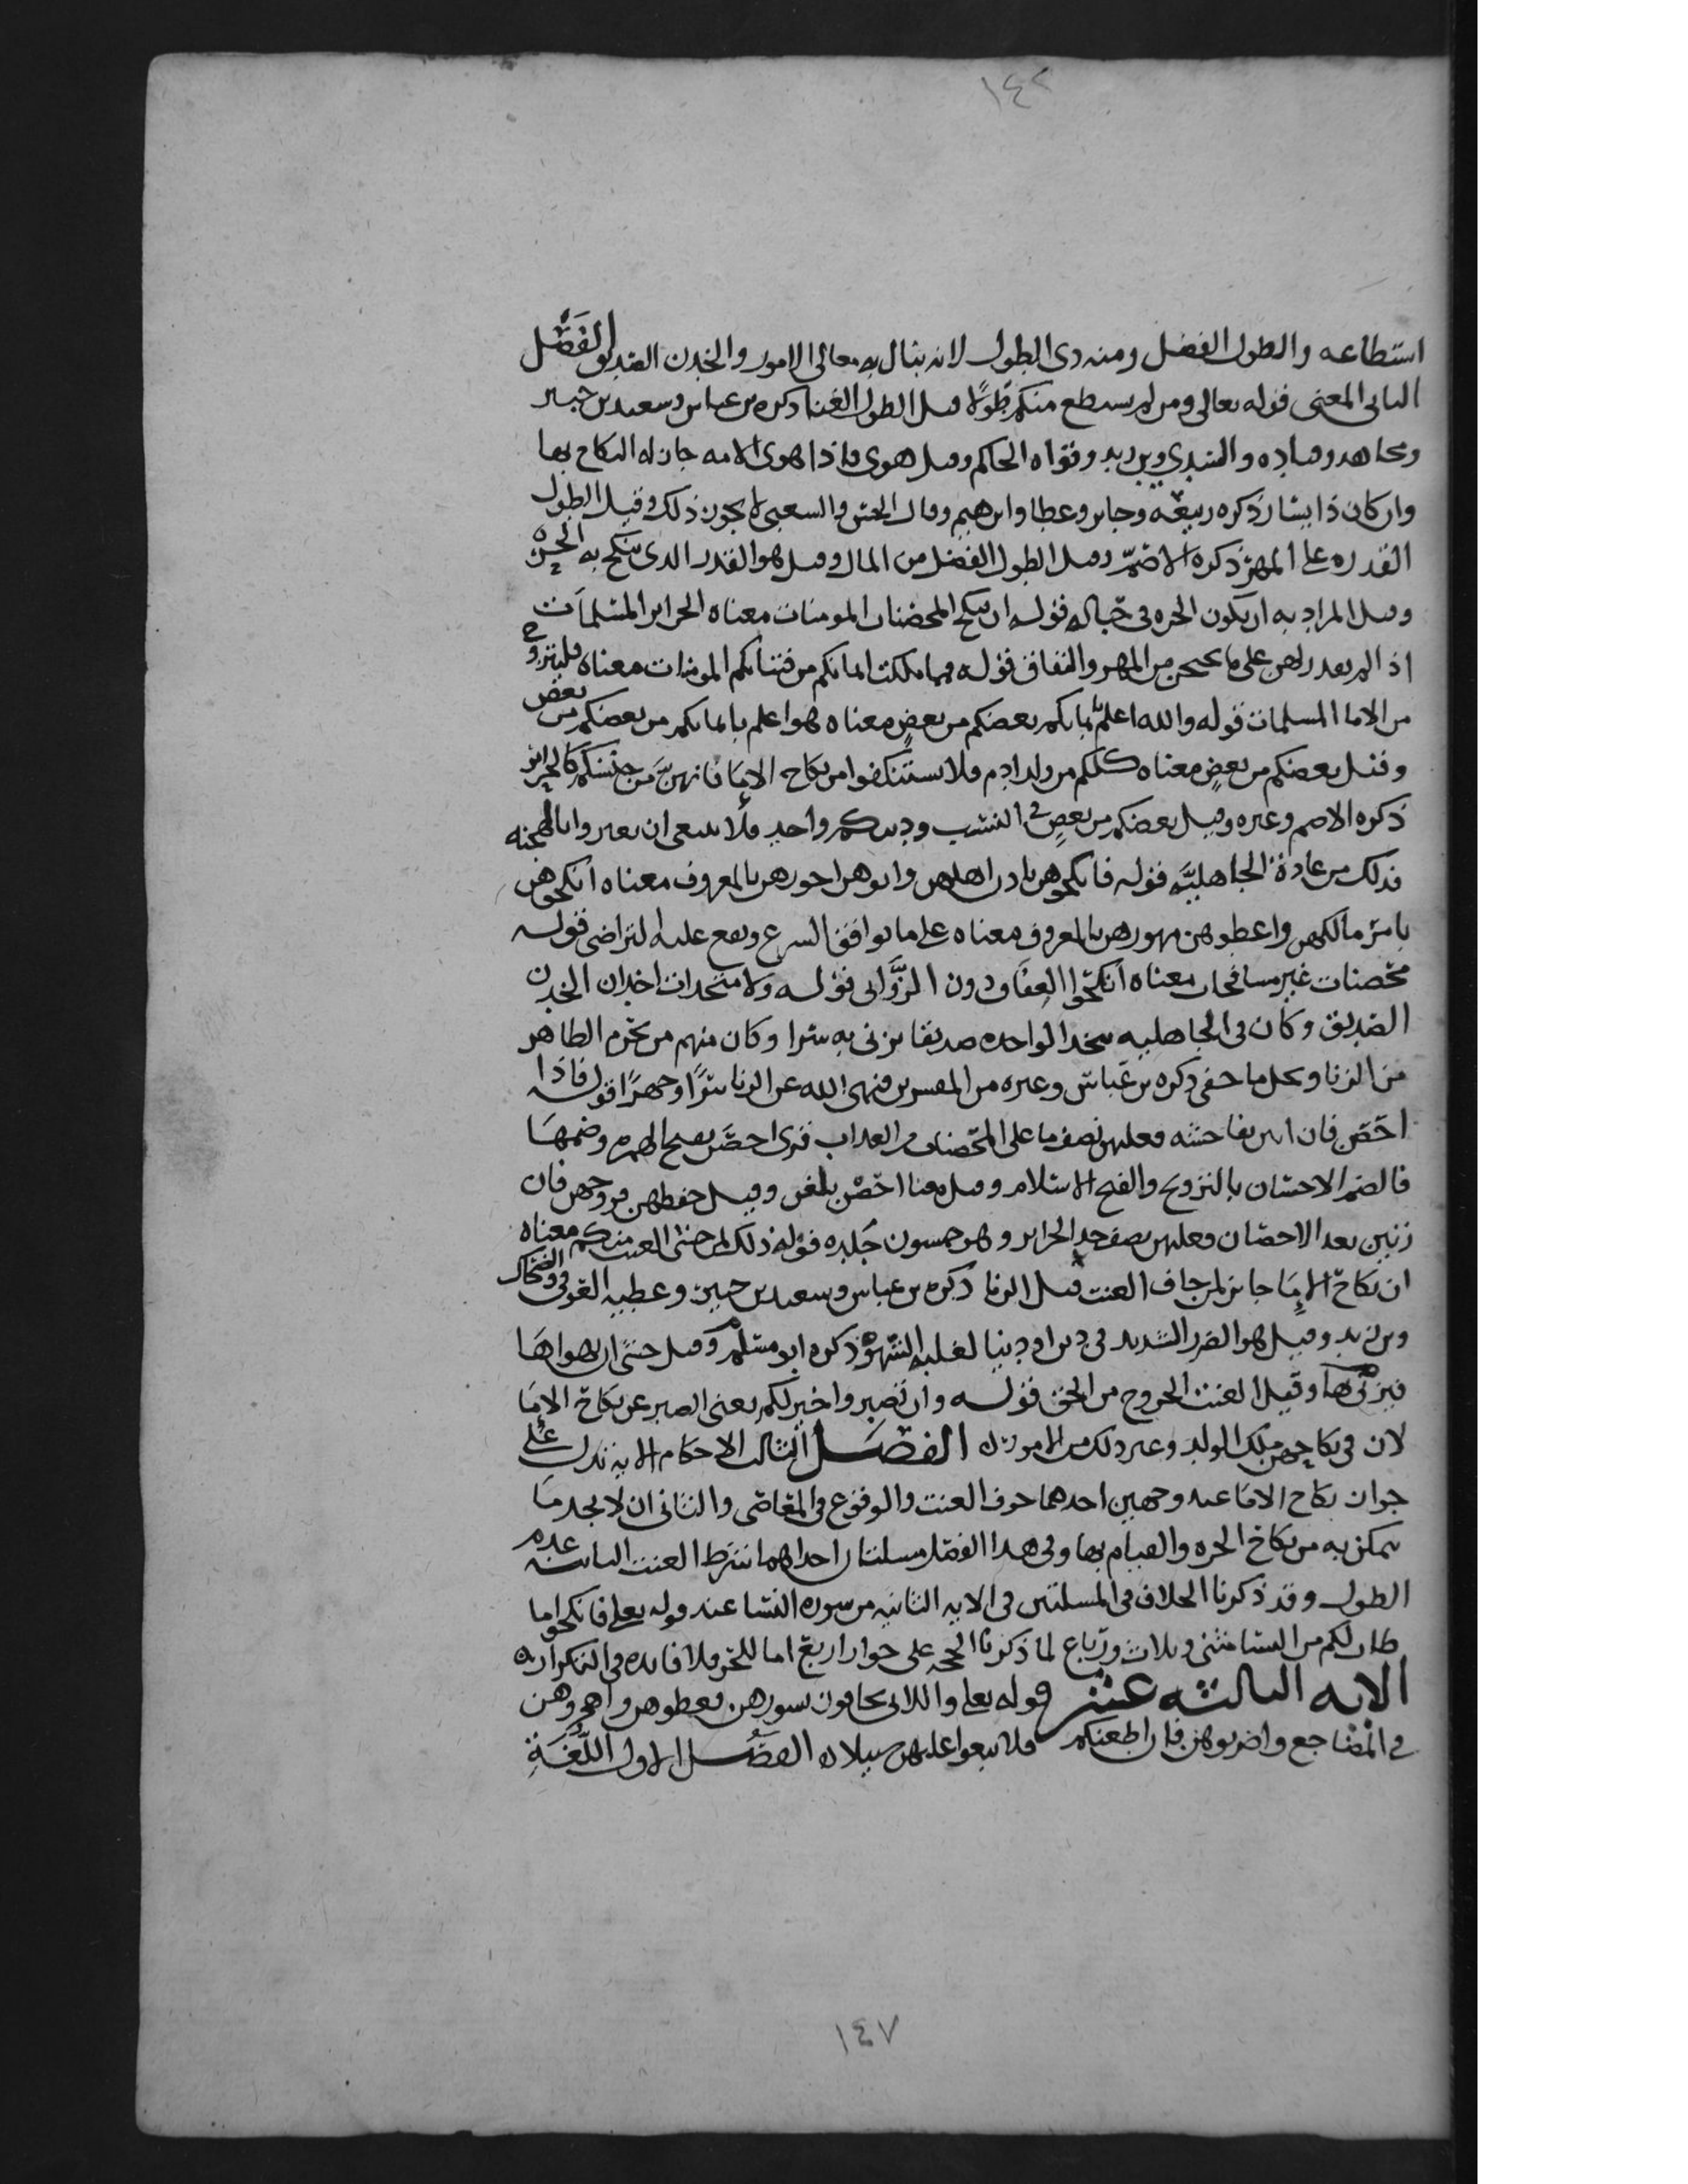 ١٤٢
استطاعه والطول الفضل ومنه ذي الطول لانه ينال به معالى الامور والخدن الصديق الفصل
الثاني المعنى قوله تعالى ومن لم يستطع منكم طولا قيل الطول الغنا ذكره بن عباس وسعيد بن جبير
ومجاهد وقتاده والسدي وبن زيد وقواه الحاكم وقيل هوى فاذا هوى الامه جاز له النكاح بها
وان كان ذا يسار ذكره ربيعه وجابر وعطا وابرهيم وقال الحسن والشعبي لا يجوز ذلك وقيل الطول
القدره على المهر ذكره الاصم وقيل الطول الفضل من المال وقيل هو القدر الذي ينكح به الحره
وقيل المراد به ان يكون الحره في حباله قوله ان ينكح المحصنات المومنات معناه الحراير المسلمات
اذا لم يقدر لهن على ما يصلحن من المهر والنفاق قوله فمما ملكت ايمانكم من فتياتكم المومنات معناه فليتزوج
من الاما المسلمات قوله والله اعلم بايمانكم بعضكم من بعض معناه هو اعلم بايمانكم من بعضكم من بعض
وقيل بعضكم من بعض معناه كلكم من ولد ادم فلا تستنكفوا من نكاح الاما فانهن من جنسكم كالحراير
ذكره الاصم وغيره وقيل بعضكم من بعض في النسب ودينكم واحد فلا ينبغي ان يعيروا بالهجنه
فذلك من عادة الجاهليه قوله فانكحوهن باذن اهلهن واتوهن اجورهن بالمعروف معناه انكحوهن
بامر مالكهن واعطوهن مهورهن بالمعروف معناه على ما يوافق الشرع ويقع عليه التراضي قوله
محصنات غير مسافحات معناه انكحوا العفاف دون الزواني قوله ولا متخذات اخدان الخدن
الصديق وكان في الجاهليه يتخذ الواحده صديقا يزني به سرا وكان منهم من يحرم الظاهر
من الزنا ويحل ما خفي ذكره بن عباس وغيره من المفسرين فنهى الله عن الزنا سرا وجهرا قوله فاذا
احصن فان اتين بفاحشه فعليهن نصف ما على المحصنات من العذاب قرى احصن بفتح الهمزه وضمها
فالضم الاحصان بالتزويج والفتح الاسلام وقيل معنا احصن بلغن وقيل حفظهن فروجهن فان
زنين بعد الاحصان فعليهن نصف حد الحراير وهو خمسون جلده قوله ذلك لمن خشى العنت منكم معناه
ان نكاح الاما جايز لمن خاف العنت قيل الزنا ذكره بن عباس وسعيد بن جبير وعطيه العوفي والضحاك
وبن زيد وقيل هو الضرر الشديد في دين او دنيا لغلبه الشهوة ذكره ابو مسلم وقيل خشى ان يهواها
فيزني بها وقيل العنت الخروج من الحق قوله وان تصبروا خير لكم يعني الصبر عن نكاح الاما
لان في نكاحهن ملك الولد وغير ذلك من الامور الفصل الثالث الاحكام الايه تدل على
جواز نكاح الاما عند وجهين احدهما خوف العنت والوقوع في المعاصي والثاني ان لا يجد ما
يتمكن به من نكاح الحره والقيام بها وفي هذا الفصل مسلتان احداهما شرط العنت الثانيه عدم
الطول وقد ذكرنا الخلاف في المسلتين في الايه الثانيه من سوره النسا عند قوله تعلى فانكحوا ما
طاب لكم من النسا مثنى وثلاث ورباع لما ذكرنا الحجه على جواز اربع اما للحر فلا فايده في التكرار
الايه الثالثه عشر قوله تعلى واللاتي تخافون نشوزهن فعظوهن واهجروهن
في المضاجع واضربوهن فان اطعنكم فلا تبغوا عليهن سبيلا الفصل الاول اللغة
١٤٧